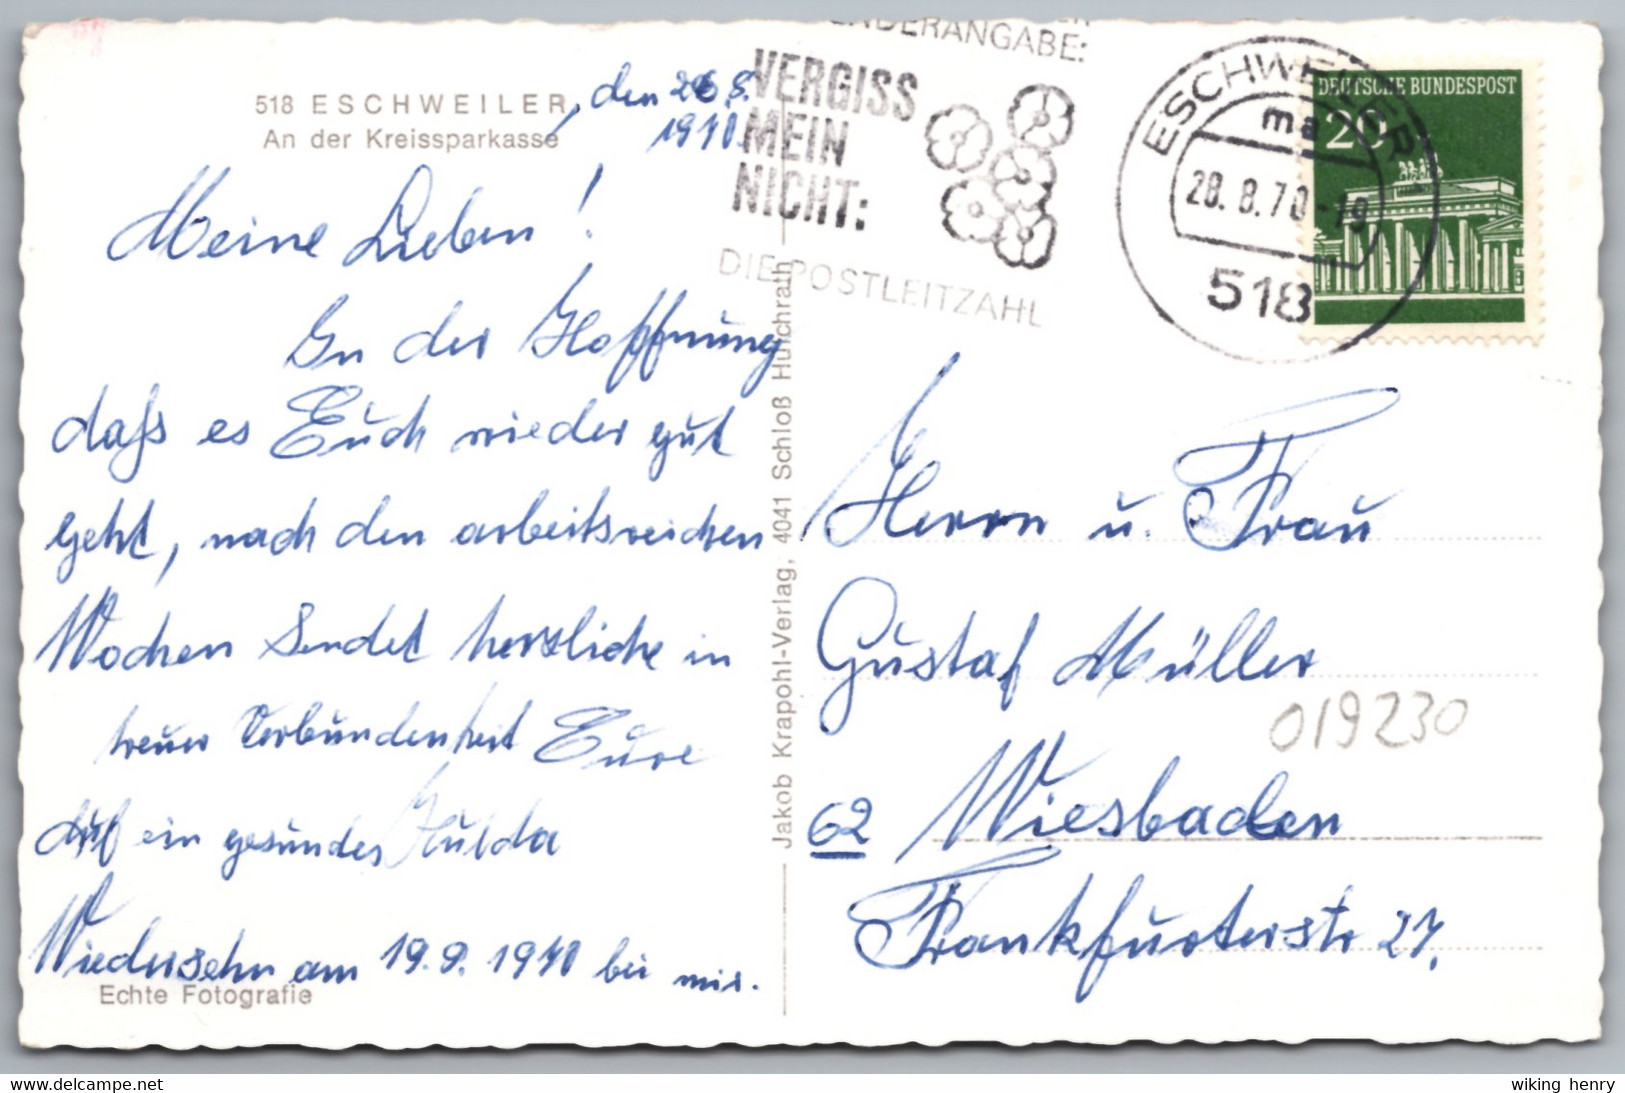 518 ESCHWEILER, den 26.8.
An der Kreissparkasse 1970.
Meine Lieben!
In der Hoffnung
daß es Euch wieder gut
geht, nach den arbeitsreichen
Wochen sendet herzliche in
treuer Verbundenheit Eure
Hulda
Auf ein gesundes
Wiedersehn am 19.9.1970 bei mir.
Echte Fotografie
Jakob Krapohl-Verlag, 4041 Schloß Hülchrath
ENDERANGABE:
VERGISS
MEIN
NICHT:
DIE POSTLEITZAHL
ESCHWEILER
ma
28.8.70-19
518
DEUTSCHE BUNDESPOST
20
Herrn u. Frau
Gustaf Müller
019230
62 Wiesbaden
Frankfurterstr 27.
wiking henry